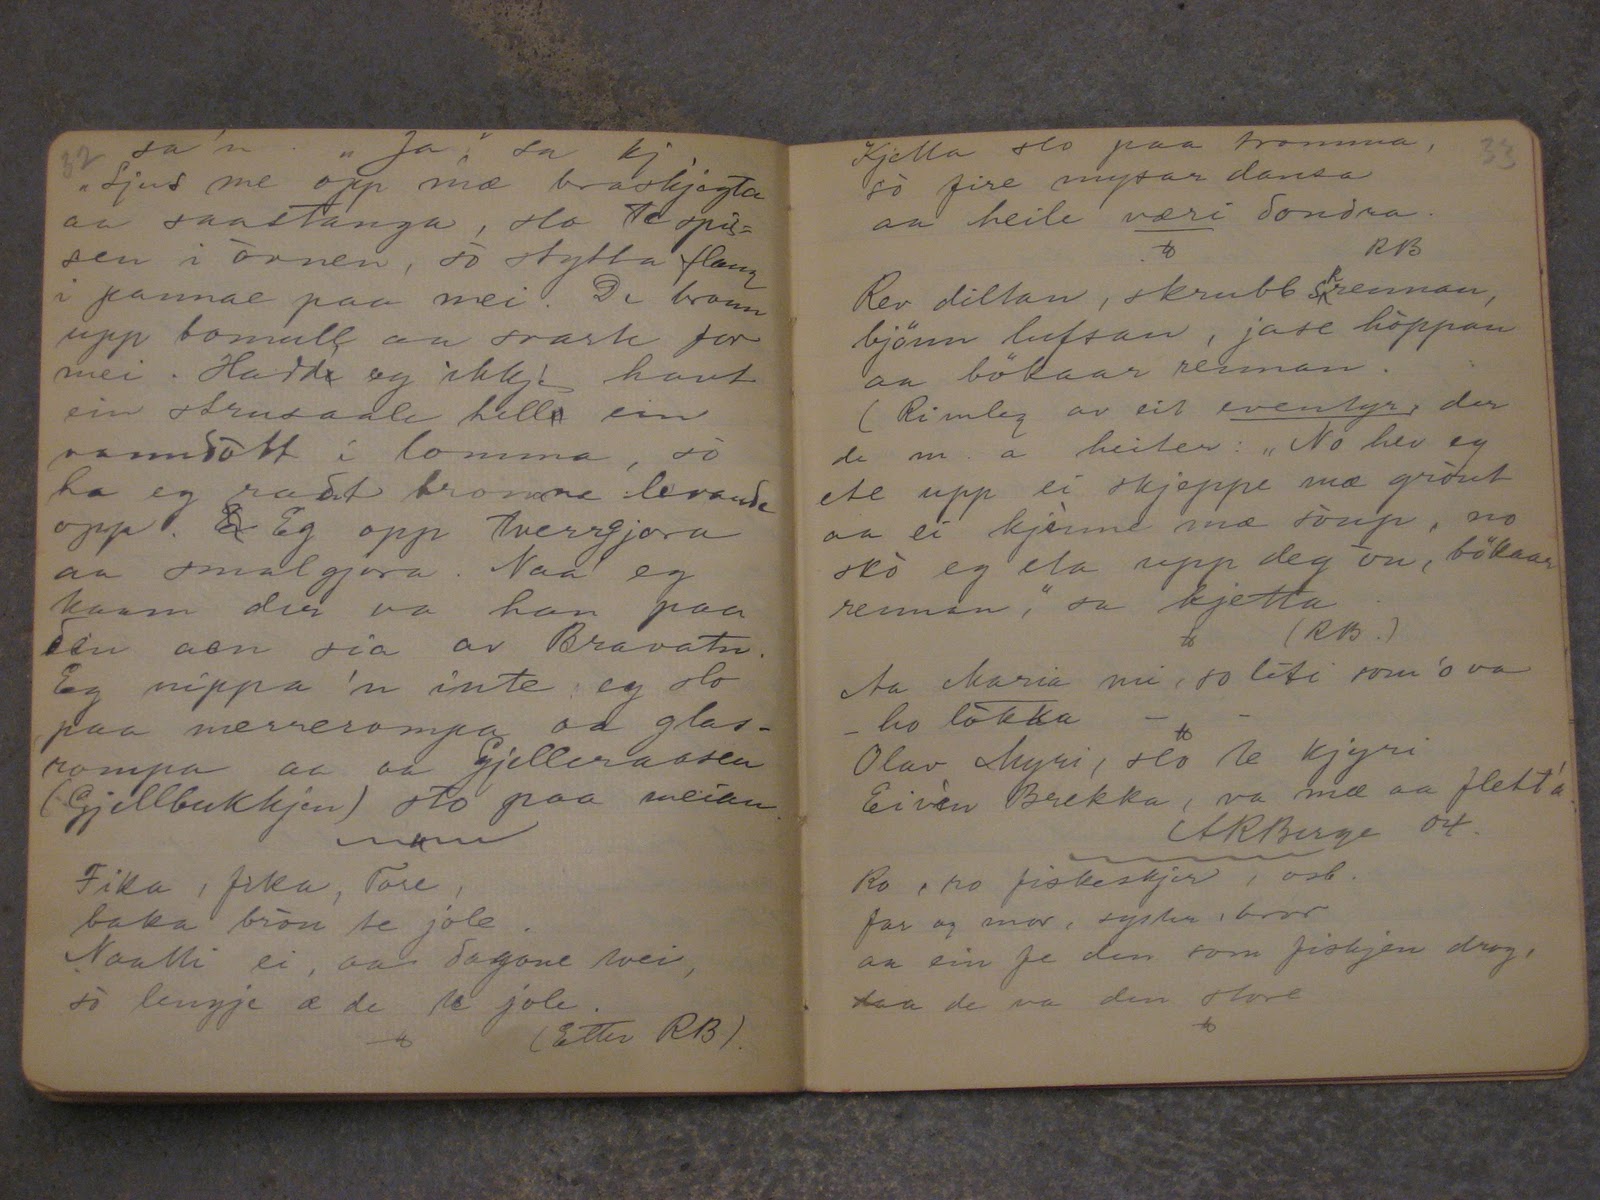 32
sa'n. „Ja," sa kj
„Ljus me opp mæ braskjægta
aa saastanga, slo te spis=
sen i òvnen, sò stytta flaug
i pannae paa mei. De brann
upp bomull aa svarte for
mei. Hadde eg ikkje havt
ein strusaale hell ein
vanndott i lomma, sò
ha eg radt bronne levande
opp. Eg opp tverrgjora
aa smalgjora. Naa eg
kaam der va han paa
den aen sia av Bravatn.
Eg nippa 'n inte, eg slo
paa merrerompa aa glas-
rompa aa aa Gjelleraasen
(Gjellbukkjen) slo paa meian.
Fika, fika, Tore,
baka bròu te jole.
Naatti ei, aa dagane tvei,
sò lengje æ de te jole.
(Etter RB).
33
Kjetta slo paa tromma,
sò fire mysar dansa
aa heile væri dondra.
RB
Rev diltan, skrubb rennan,
bjònn lufsan, jase hòppan
aa bökaar rennan.
(Rimleg av eit eventyr, der
de m. a heiter: „No hev eg
ete upp ei skjeppe mæ gròut
aa ei kjinne mæ sòup, no
skò eg eta upp deg òu, bökaar
rennan," sa kjetta.
(RB.)
Aa Maria mi, so liti som 'o va
– ho lòkka – –
Olav Myri, slo te kjyri
Eivin Brekka, va mæ aa flett'a.
AKBerge 04.
Ro, ro fiskeskjer, osb.
far og mor, syster, bror
aa ein fe den som fiskjen drog,
aa de va den store